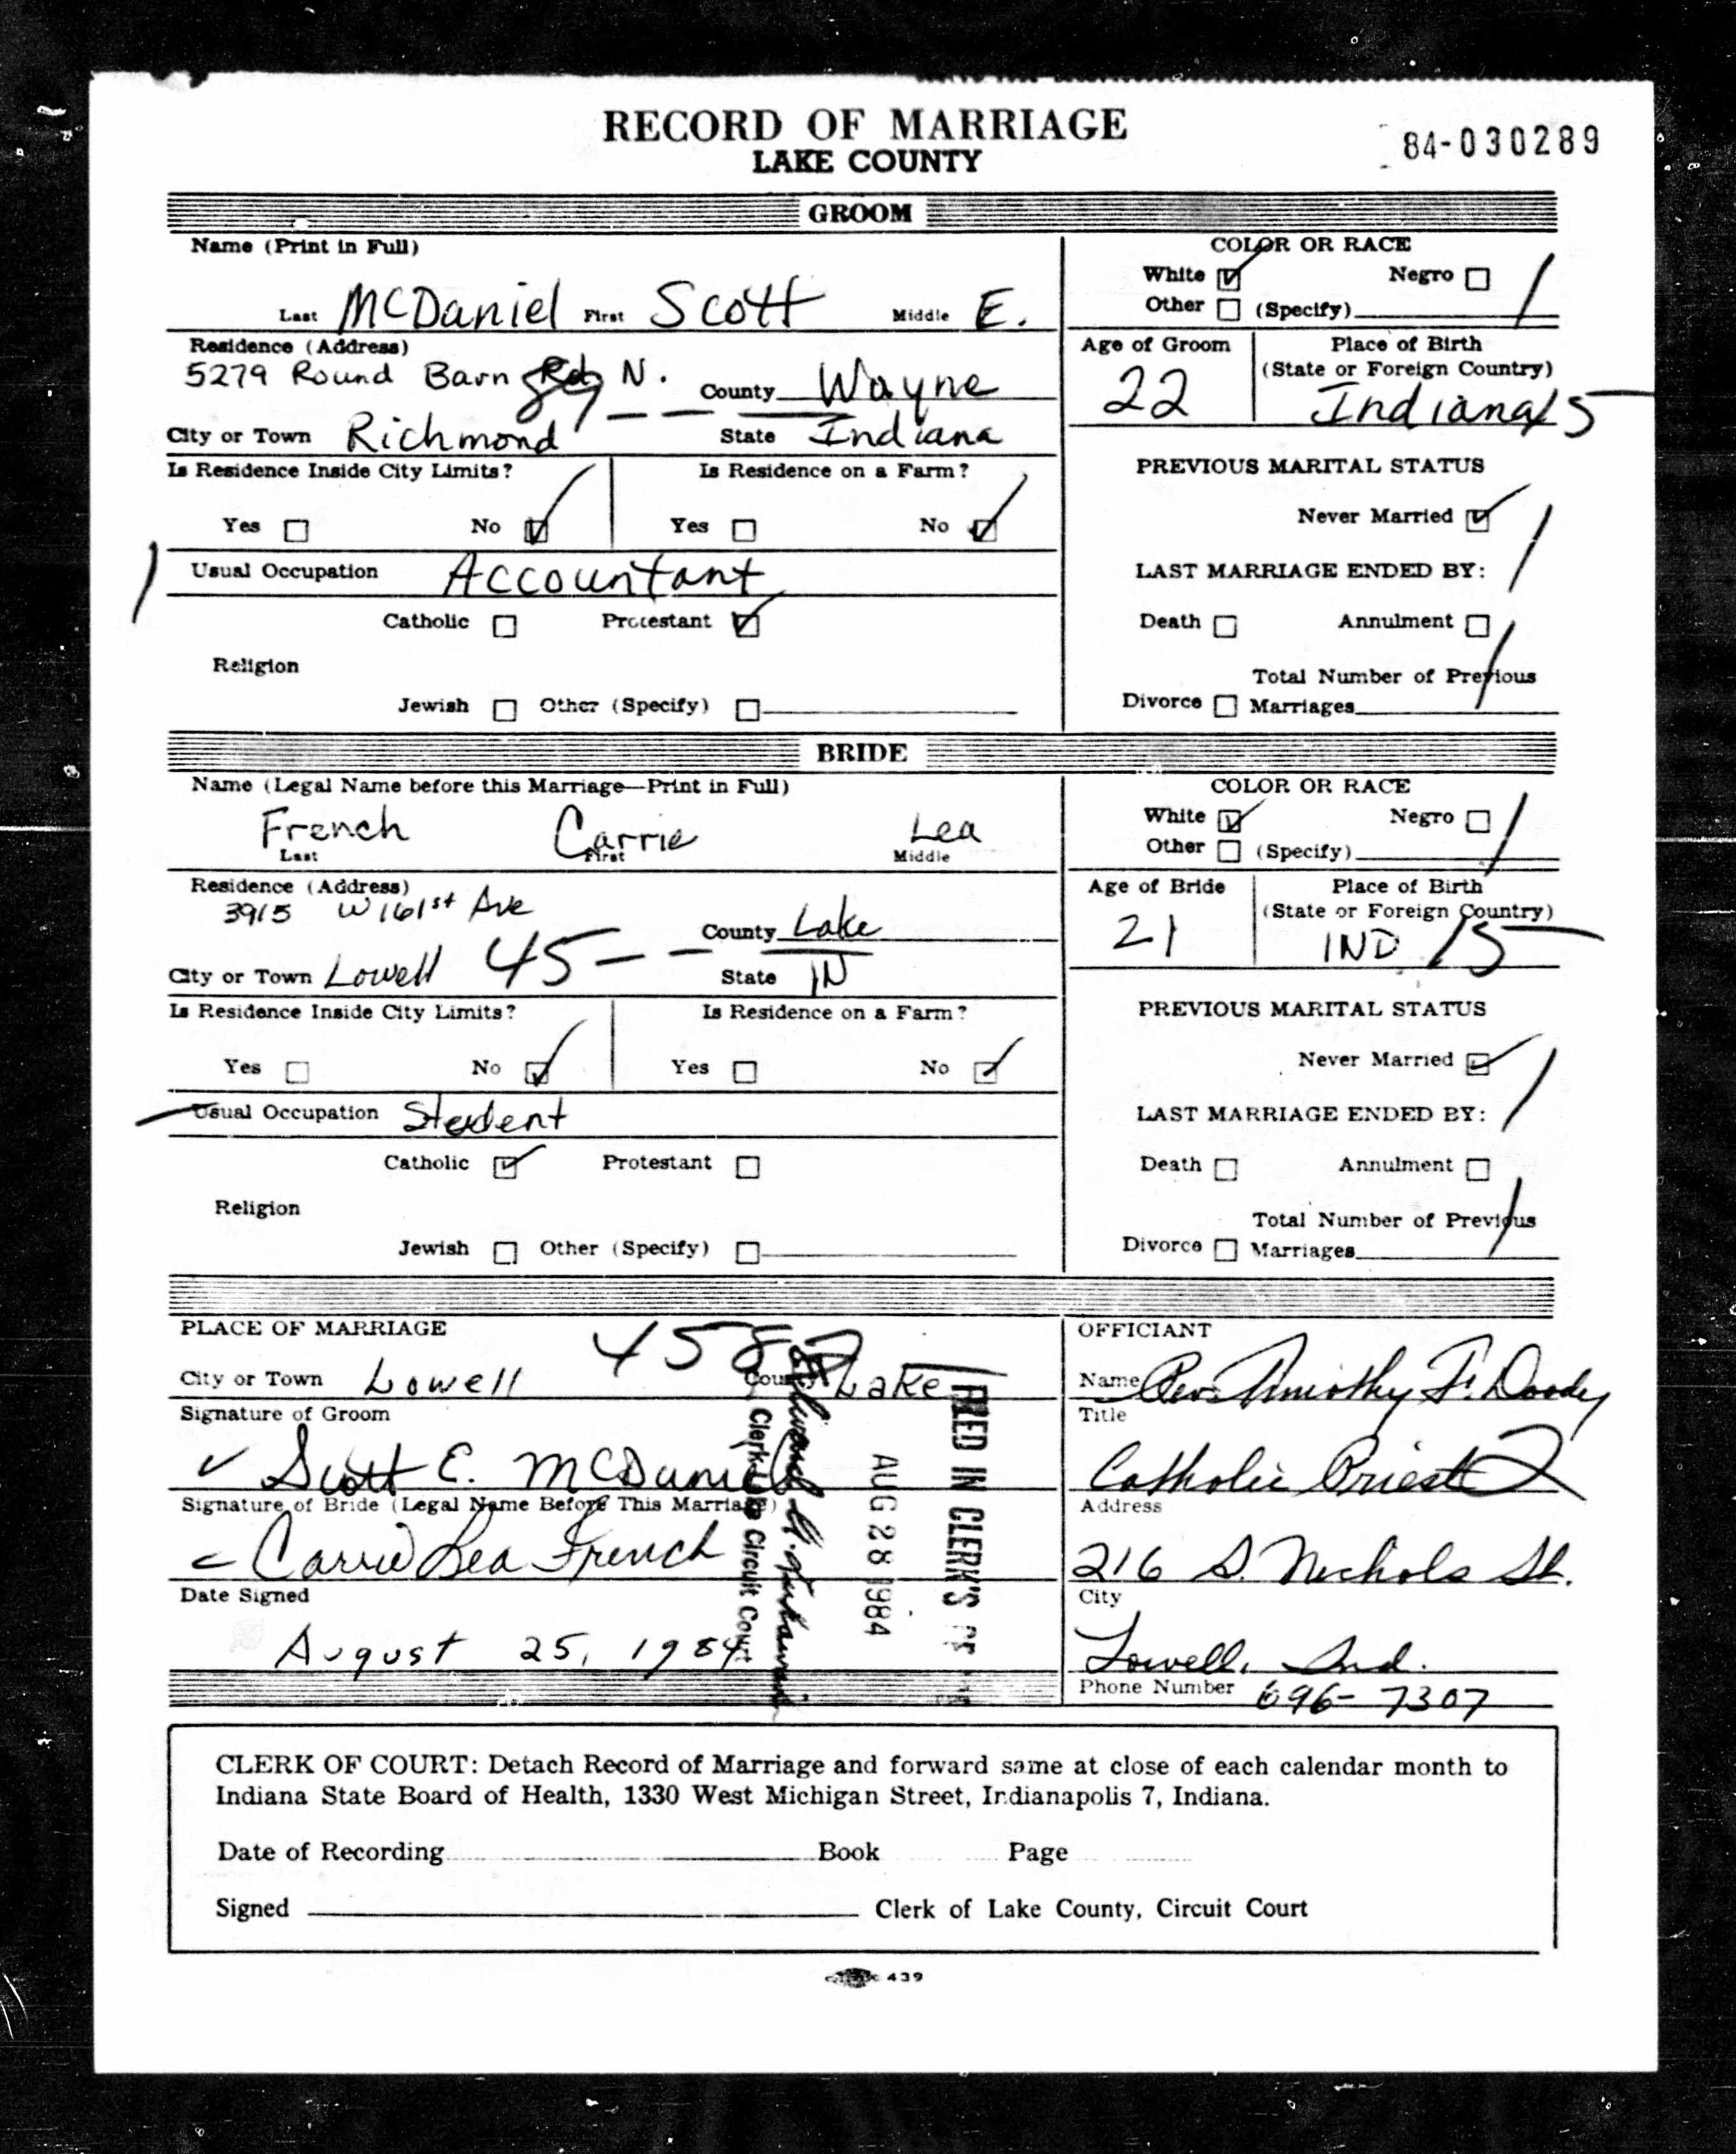 RECORD OF MARRIAGE
LAKE COUNTY
84-030289
GROOM
Name (Print in Full)
Last McDaniel First Scott Middle E.
COLOR OR RACE
White ☑ Negro ☐
Other ☐ (Specify)
Residence (Address)
5279 Round Barn Rd N.
County Wayne
City or Town Richmond State Indiana
Age of Groom
22
Place of Birth
(State or Foreign Country)
Indiana 15
Is Residence Inside City Limits?
Yes ☐ No ☑
Is Residence on a Farm?
Yes ☐ No ☑
Usual Occupation Accountant
Catholic ☐ Protestant ☑
Religion
Jewish ☐ Other (Specify) ☐
PREVIOUS MARITAL STATUS
Never Married ☑
LAST MARRIAGE ENDED BY:
Death ☐ Annulment ☐
Total Number of Previous
Divorce ☐ Marriages
BRIDE
Name (Legal Name before this Marriage—Print in Full)
French Carrie Lea
Last First Middle
COLOR OR RACE
White ☑ Negro ☐
Other ☐ (Specify)
Residence (Address)
3915 W 161st Ave
County Lake
City or Town Lowell 45 -- State IN
Age of Bride
21
Place of Birth
(State or Foreign Country)
IND 15
Is Residence Inside City Limits?
Yes ☐ No ☑
Is Residence on a Farm?
Yes ☐ No ☑
Usual Occupation Student
Catholic ☑ Protestant ☐
Religion
Jewish ☐ Other (Specify) ☐
PREVIOUS MARITAL STATUS
Never Married ☑
LAST MARRIAGE ENDED BY:
Death ☐ Annulment ☐
Total Number of Previous
Divorce ☐ Marriages
PLACE OF MARRIAGE
City or Town Lowell County Lake
Signature of Groom
Scott E. McDaniel
Signature of Bride (Legal Name Before This Marriage)
Carrie Lea French
Date Signed
August 25, 1984
Clerk Lake Circuit Court
AUG 28 1984
FILED IN CLERK'S
OFFICIANT
Name Rev. Timothy F. Doody
Title
Catholic Priest 2
Address
216 S. Nichols St.
City
Lowell, Ind.
Phone Number 696-7307
CLERK OF COURT: Detach Record of Marriage and forward same at close of each calendar month to
Indiana State Board of Health, 1330 West Michigan Street, Indianapolis 7, Indiana.
Date of Recording Book Page
Signed Clerk of Lake County, Circuit Court
439